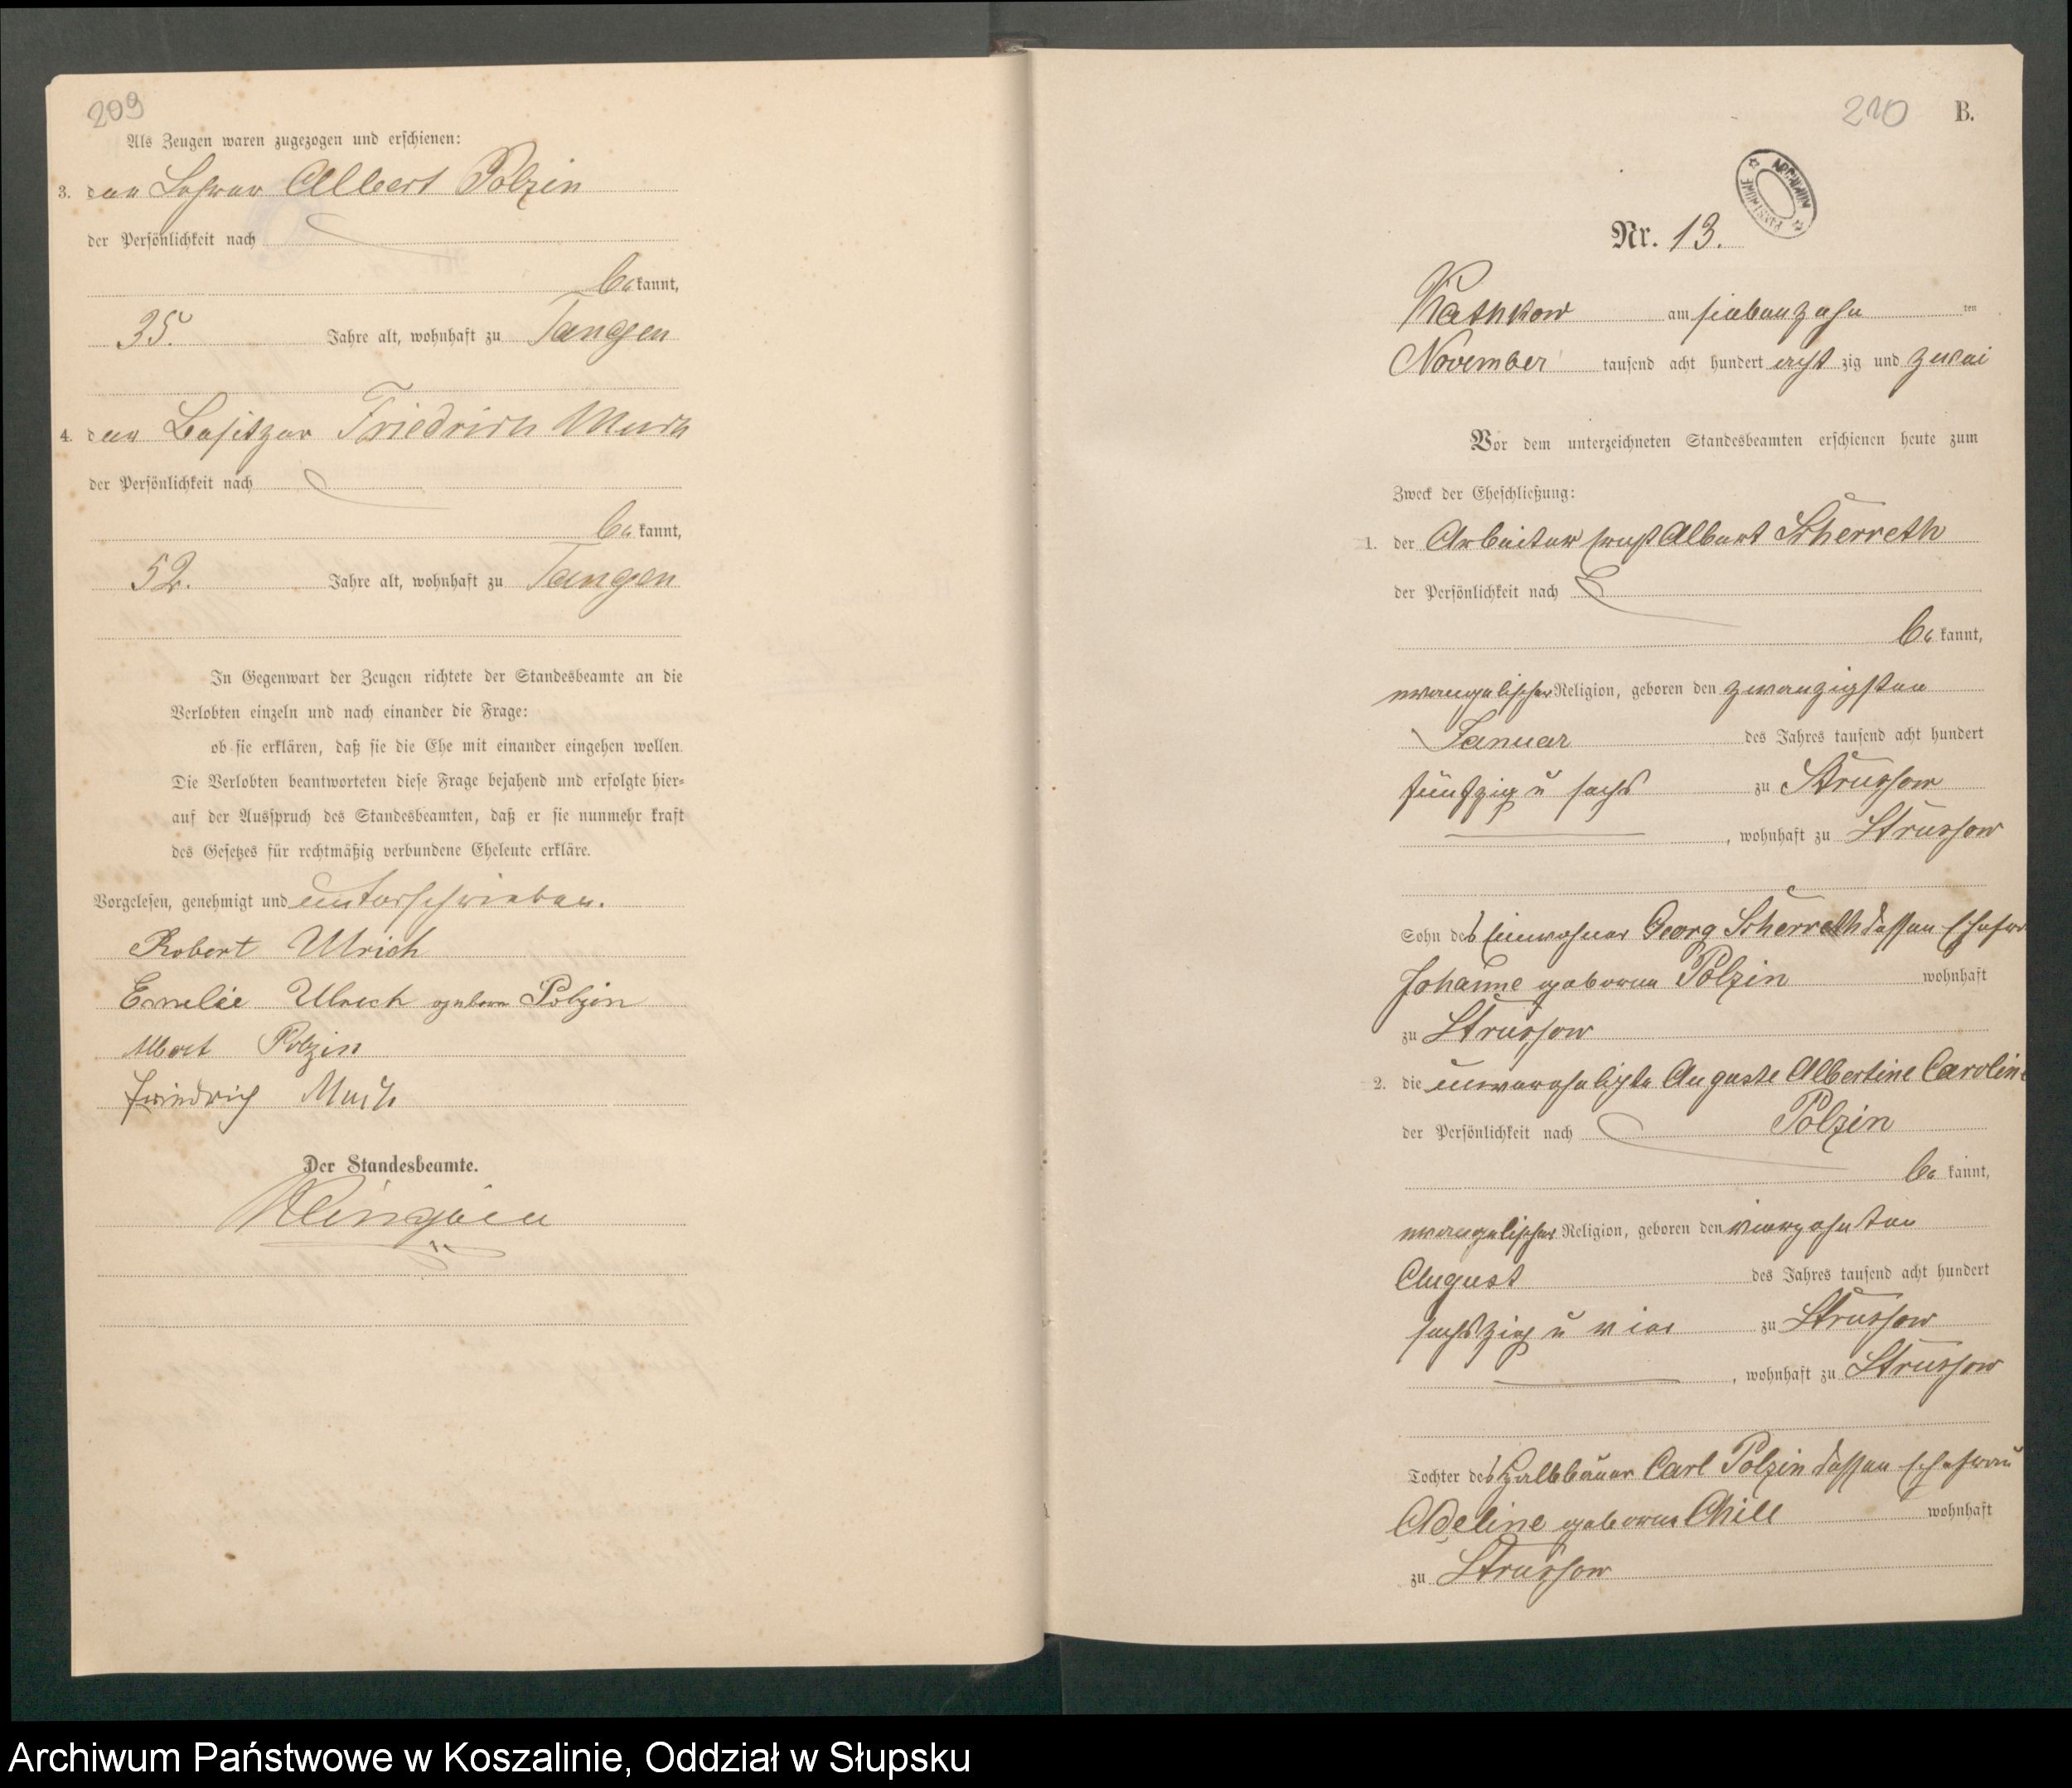 209
Als Zeugen waren zugezogen und erschienen:
3. der Lehrer Albert Polzin
der Persönlichkeit nach
be kannt,
35. Jahre alt, wohnhaft zu Tangen
4. der Besitzer Friedrich Much
der Persönlichkeit nach
be kannt,
52. Jahre alt, wohnhaft zu Tangen
In Gegenwart der Zeugen richtete der Standesbeamte an die
Verlobten einzeln und nach einander die Frage:
ob sie erklären, daß sie die Ehe mit einander eingehen wollen.
Die Verlobten beantworteten diese Frage bejahend und erfolgte hier-
auf der Ausspruch des Standesbeamten, daß er sie nunmehr kraft
des Gesetzes für rechtmäßig verbundene Eheleute erkläre.
Vorgelesen, genehmigt und unterschrieben.
Robert Ulrich
Emelie Ulrich geborn Polzin
Albert Polzin
Friedrich Much
Der Standesbeamte.
210 B.
ARCHIWUM PAŃSTWOWE
Nr. 13.
Rathkow am siebenzehn ten
November tausend acht hundert acht zig und zwei
Vor dem unterzeichneten Standesbeamten erschienen heute zum
Zweck der Eheschließung:
1. der Arbeiter Ernst Albert Scherreth
der Persönlichkeit nach
be kannt,
evangelischer Religion, geboren den zwanzigsten
Januar des Jahres tausend acht hundert
fünfzig u sechs zu Strussow
, wohnhaft zu Strussow
Sohn des Einwohner Georg Scherreth dessen Ehefrau
Johanne geborene Polzin wohnhaft
zu Strussow
2. die unverehelichte Auguste Albertine Caroline
Polzin
der Persönlichkeit nach
be kannt,
evangelischer Religion, geboren den vierzehnten
August des Jahres tausend acht hundert
sechszig u vier zu Strussow
, wohnhaft zu Strussow
Tochter des Halbbauer Carl Polzin dessen Ehefrau
Adeline geborne wohnhaft
zu Strussow
Archiwum Państwowe w Koszalinie, Oddział w Słupsku